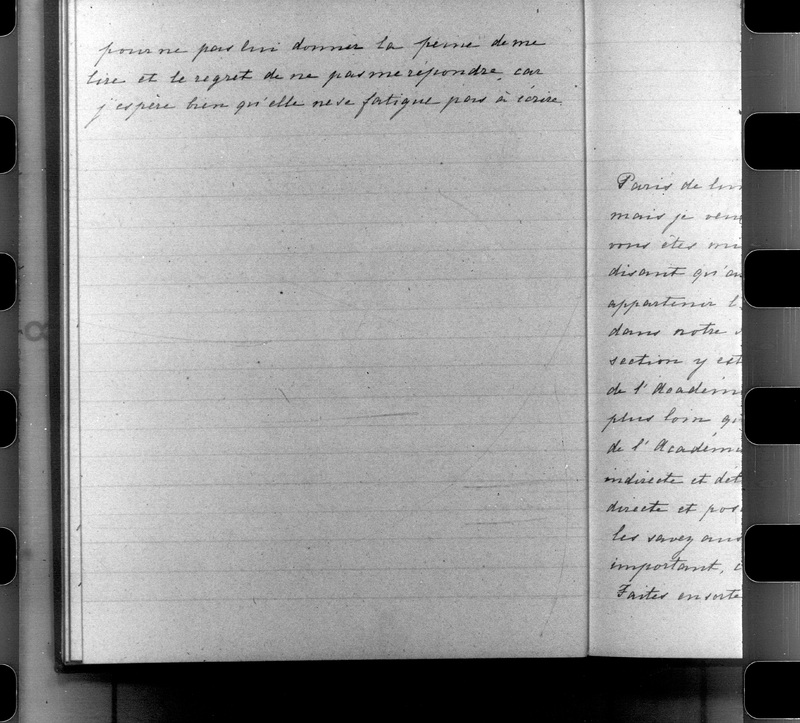 pour ne pas lui donner la peine de me
lire et le regret de ne pas me répondre, car
j'espère bien qu'elle ne se fatigue pas à écrire.
Paris de
mais je
vous êtes
disant
appartenir
dans notre
section y est
de l'
plus loin
de l'
indirecte et
directe et
les savez
important,
Faites en sorte